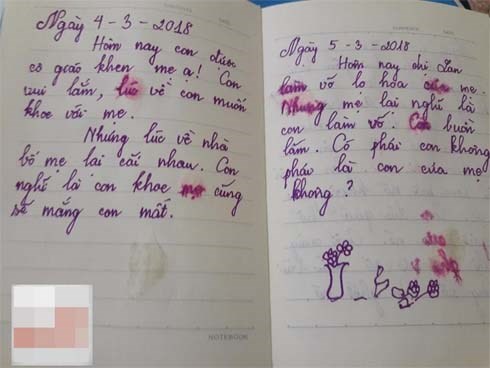 Ngày 4 - 3 - 2018
Hôm nay con được
cô giáo khen mẹ ạ! Con
vui lắm, lúc về con muốn
khoe với mẹ.
Nhưng lúc về nhà
bố mẹ lại cãi nhau. Con
nghĩ là con khoe mẹ cũng
sẽ mắng con mất.
NOTEBOOK
Ngày 5 - 3 - 2018
Hôm nay chị Lan
làm vỡ lọ hoa của mẹ.
Nhưng mẹ lại nghĩ là
con làm vỡ. Con buồn
lắm. Có phải con không
phải là con của mẹ
không ?